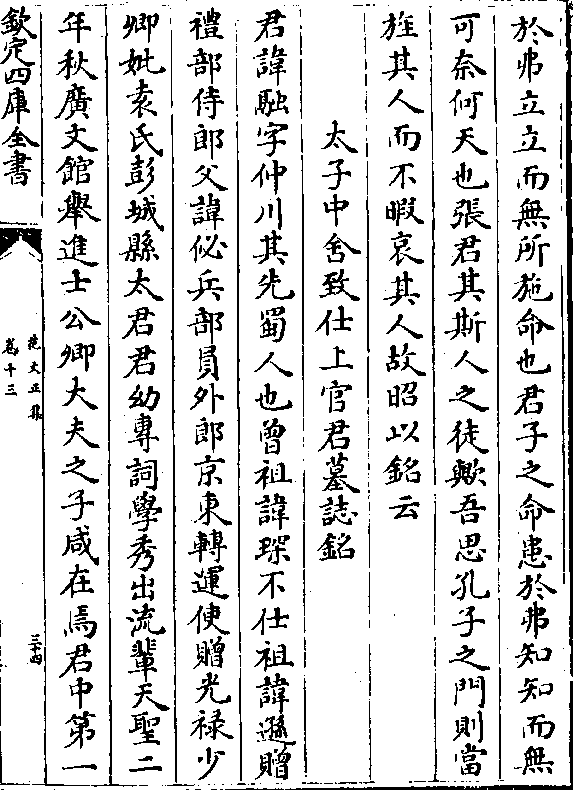 於弗立立而無所施命也君子之命患於弗知知而無
可奈何天也張君其斯人之徒歟吾思孔子之門則當
旌其人而不暇哀其人故昭以銘云
太子中舍致仕上官君墓誌銘
君諱融字仲川其先蜀人也曾祖諱琛不仕祖諱遜贈
禮部侍郎父諱佖兵部員外郎京東轉運使贈光禄少
卿妣袁氏彭城縣太君君幼專詞學秀出流輩天聖二
年秋廣文館舉進士公卿大夫之子咸在焉君中第一
欽定四庫全書
范文正集
卷十三
三十四